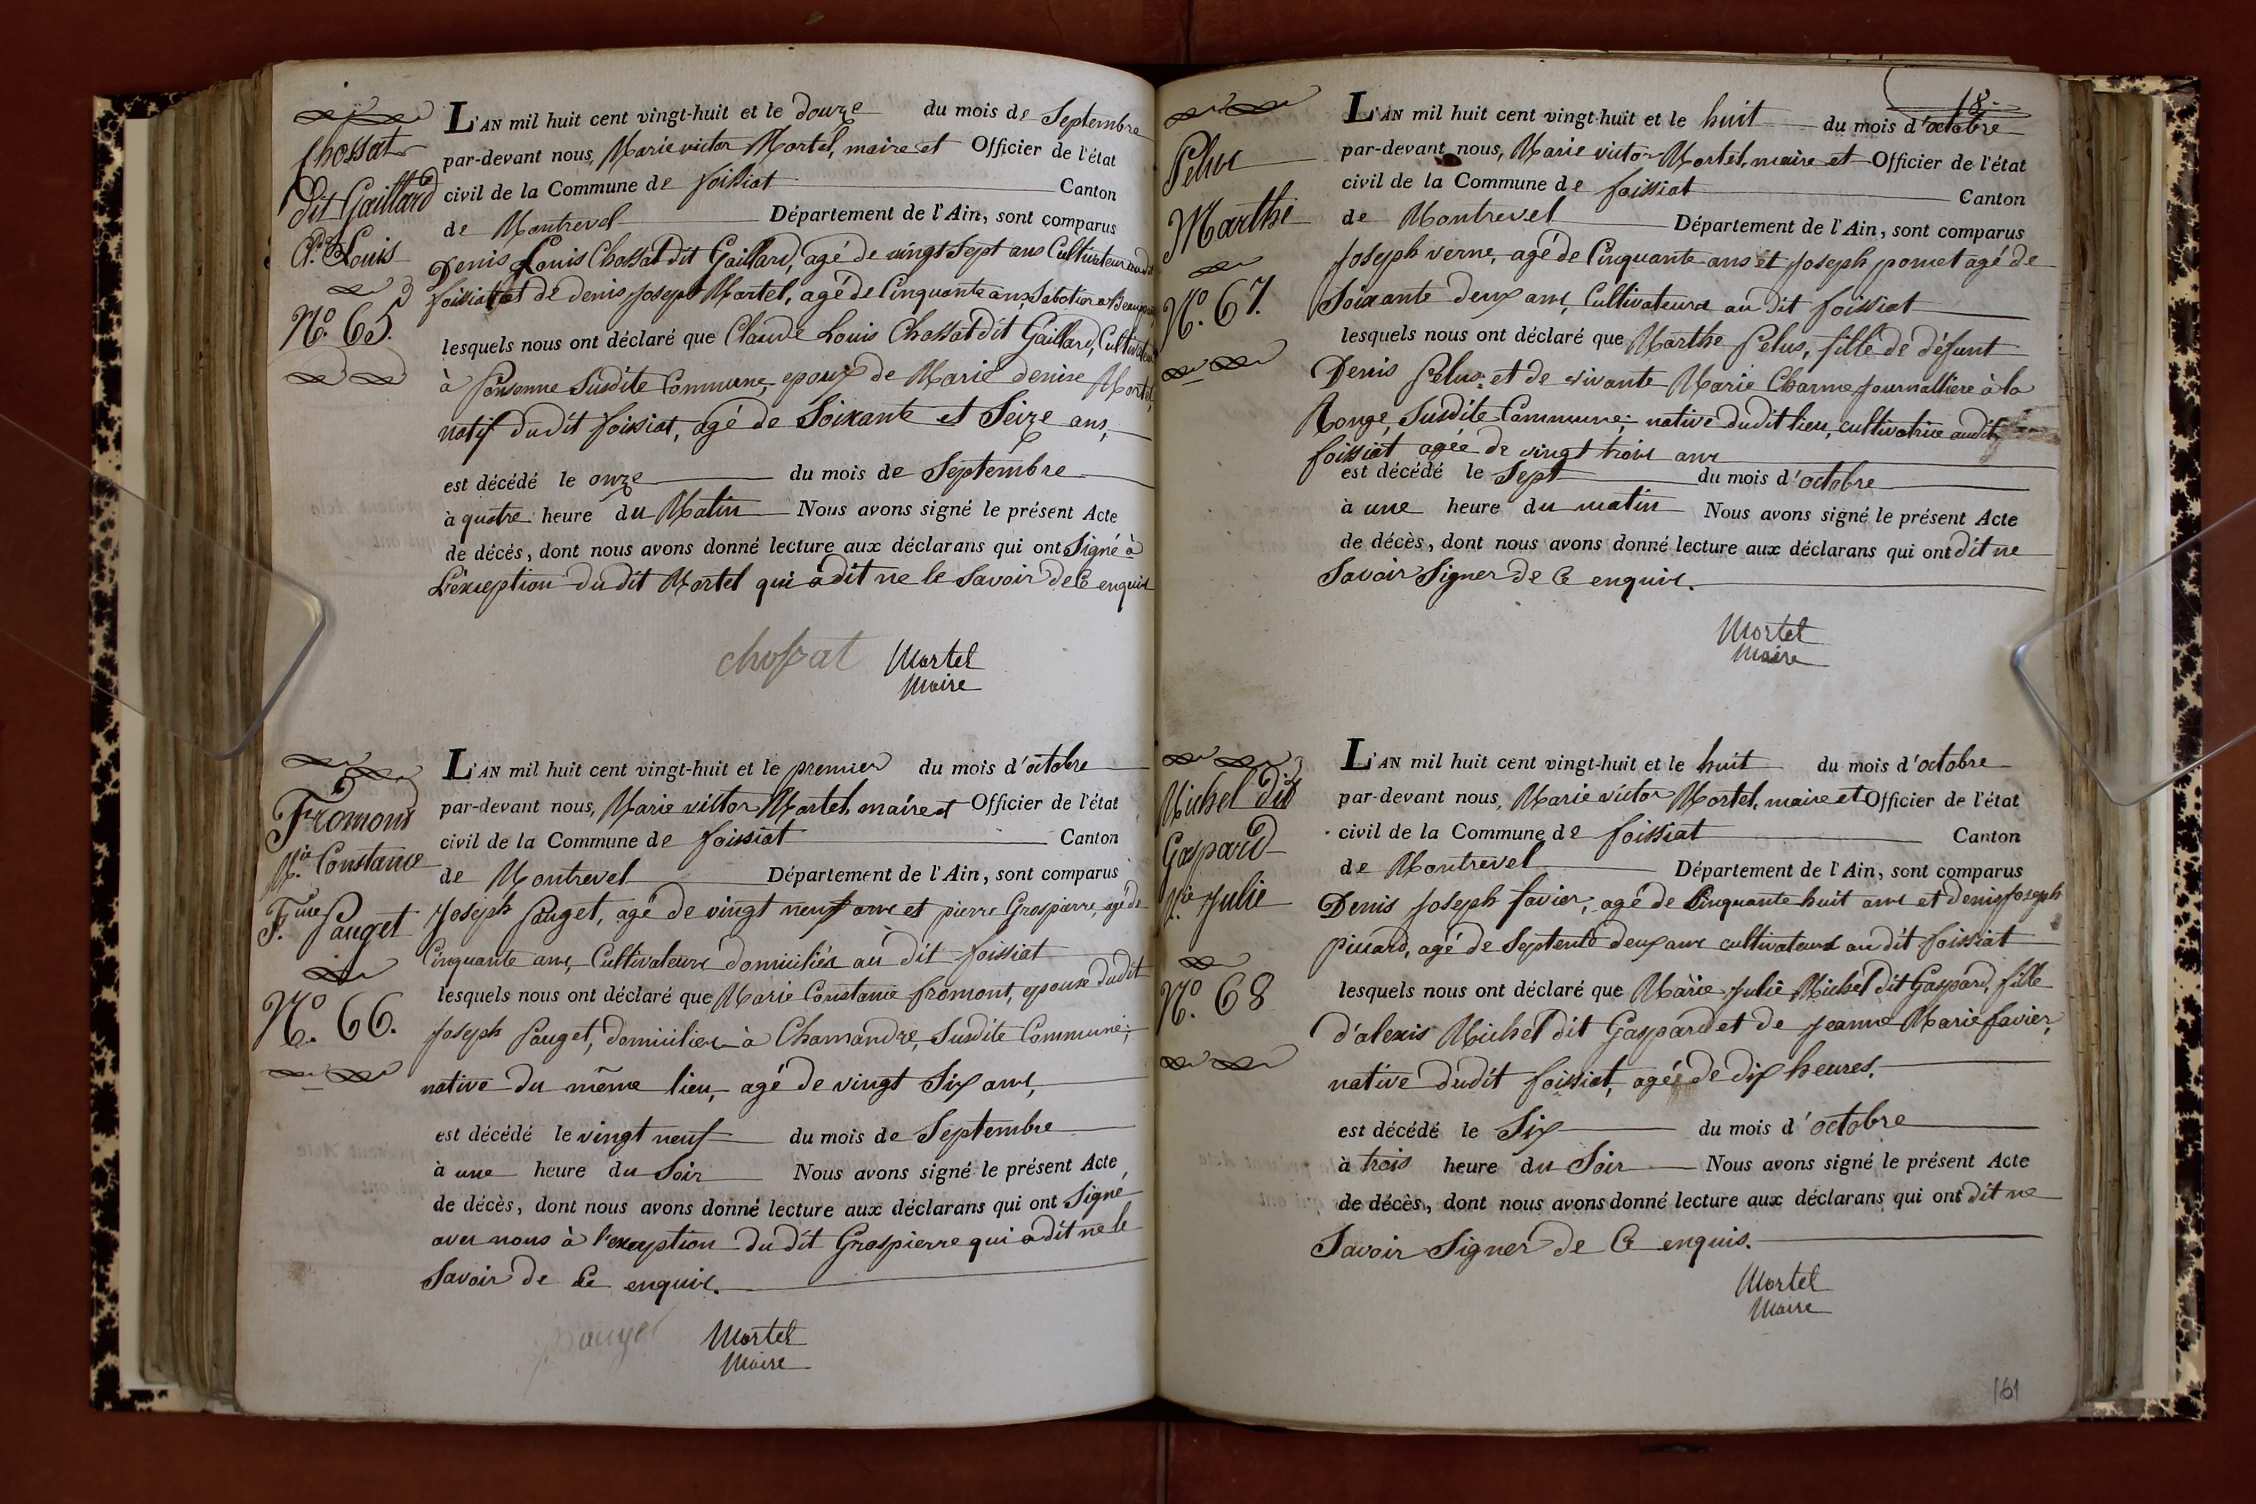 Chossat
dit Gaillard
Cl. Louis
No. 65.
L'AN mil huit cent vingt-huit et le douze du mois de Septembre
par-devant nous, Marie victor Mortel, maire et Officier de l'état
civil de la Commune de foissiat Canton
de Montrevel Département de l'Ain, sont comparus
Denis Louis Chossat dit Gaillard, agé de vingt Sept ans Cultivateur au dit
foissiat et de denis joseph Martel, agé de Cinquante ans, Sabotier a
lesquels nous ont déclaré que Claude Louis Chossat dit Gaillard, Cultivateur
à Susdite Commune, epoux de Marie denise Mortel,
natif du dit foissiat, agé de Soixante et Seize ans,
est décédé le onze du mois de Septembre
à quatre heure du Matin Nous avons signé le présent Acte
de décès, dont nous avons donné lecture aux déclarans qui ont Signé à
L'exception du dit Martel qui a dit ne le Savoir de Ce enquis
chossat Mortel
Maire
Fromont
Mie. Constance
Fme. Pauget
No. 66.
L'AN mil huit cent vingt-huit et le premier du mois d'octobre
par-devant nous, Marie victor Mortel, maire et Officier de l'état
civil de la Commune de foissiat Canton
de Montrevel Département de l'Ain, sont comparus
Joseph Pauget, agé de vingt neuf ans et pierre Grospierre, agé de
Cinquante ans, Cultivateurs domiciliés au dit foissiat
lesquels nous ont déclaré que Marie Constance fromont, epouse dudit
Joseph Pauget, domiciliée à Chamandre, Susdite Commune;
native du même lieu, agé de vingt Six ans,
est décédé le vingt neuf du mois de Septembre
à une heure du Soir Nous avons signé le présent Acte
de décès, dont nous avons donné lecture aux déclarans qui ont Signé
avec nous à l'exception du dit Grospierre qui a dit ne le
Savoir de Ce enquis.
pauget Mortel
Maire
18
Pelus
Marthe
No. 67.
L'AN mil huit cent vingt-huit et le huit du mois d'octobre
par-devant nous, Marie victor Mortel, maire et Officier de l'état
civil de la Commune de foissiat Canton
de Montrevel Département de l'Ain, sont comparus
Joseph verne, agé de Cinquante ans et Joseph pomet agé de
Soixante deux ans, Cultivateurs au dit foissiat
lesquels nous ont déclaré que Marthe Pelus, fille de défunt
Denis Pelus et de vivante Marie Charme journalliere à la
Ronge, Susdite Commune; native dudit lieu, cultivatrice audit
foissiat agée de vingt trois ans
est décédé le Sept du mois d'octobre
à une heure du matin Nous avons signé le présent Acte
de décès, dont nous avons donné lecture aux déclarans qui ont dit ne
Savoir Signer de Ce enquis.
Mortel
Maire
Michel dit
Gaspard
Mie Julie
No. 68
L'AN mil huit cent vingt-huit et le huit du mois d'octobre
par-devant nous, Marie victor Mortel, maire et Officier de l'état
civil de la Commune de foissiat Canton
de Montrevel Département de l'Ain, sont comparus
Denis Joseph favier, agé de Cinquante huit ans et denis joseph
picard, agé de Septente deux ans cultivateurs au dit foissiat
lesquels nous ont déclaré que Marie Julie Michel dit Gaspard, fille
d'alexis Michel dit Gaspard et de Jeanne Marie favier,
native dudit foissiat, agée de dix heures.
est décédé le Six du mois d'octobre
à trois heure du Soir Nous avons signé le présent Acte
de décès, dont nous avons donné lecture aux déclarans qui ont dit ne
Savoir Signer de Ce enquis.
Mortel
Maire
161